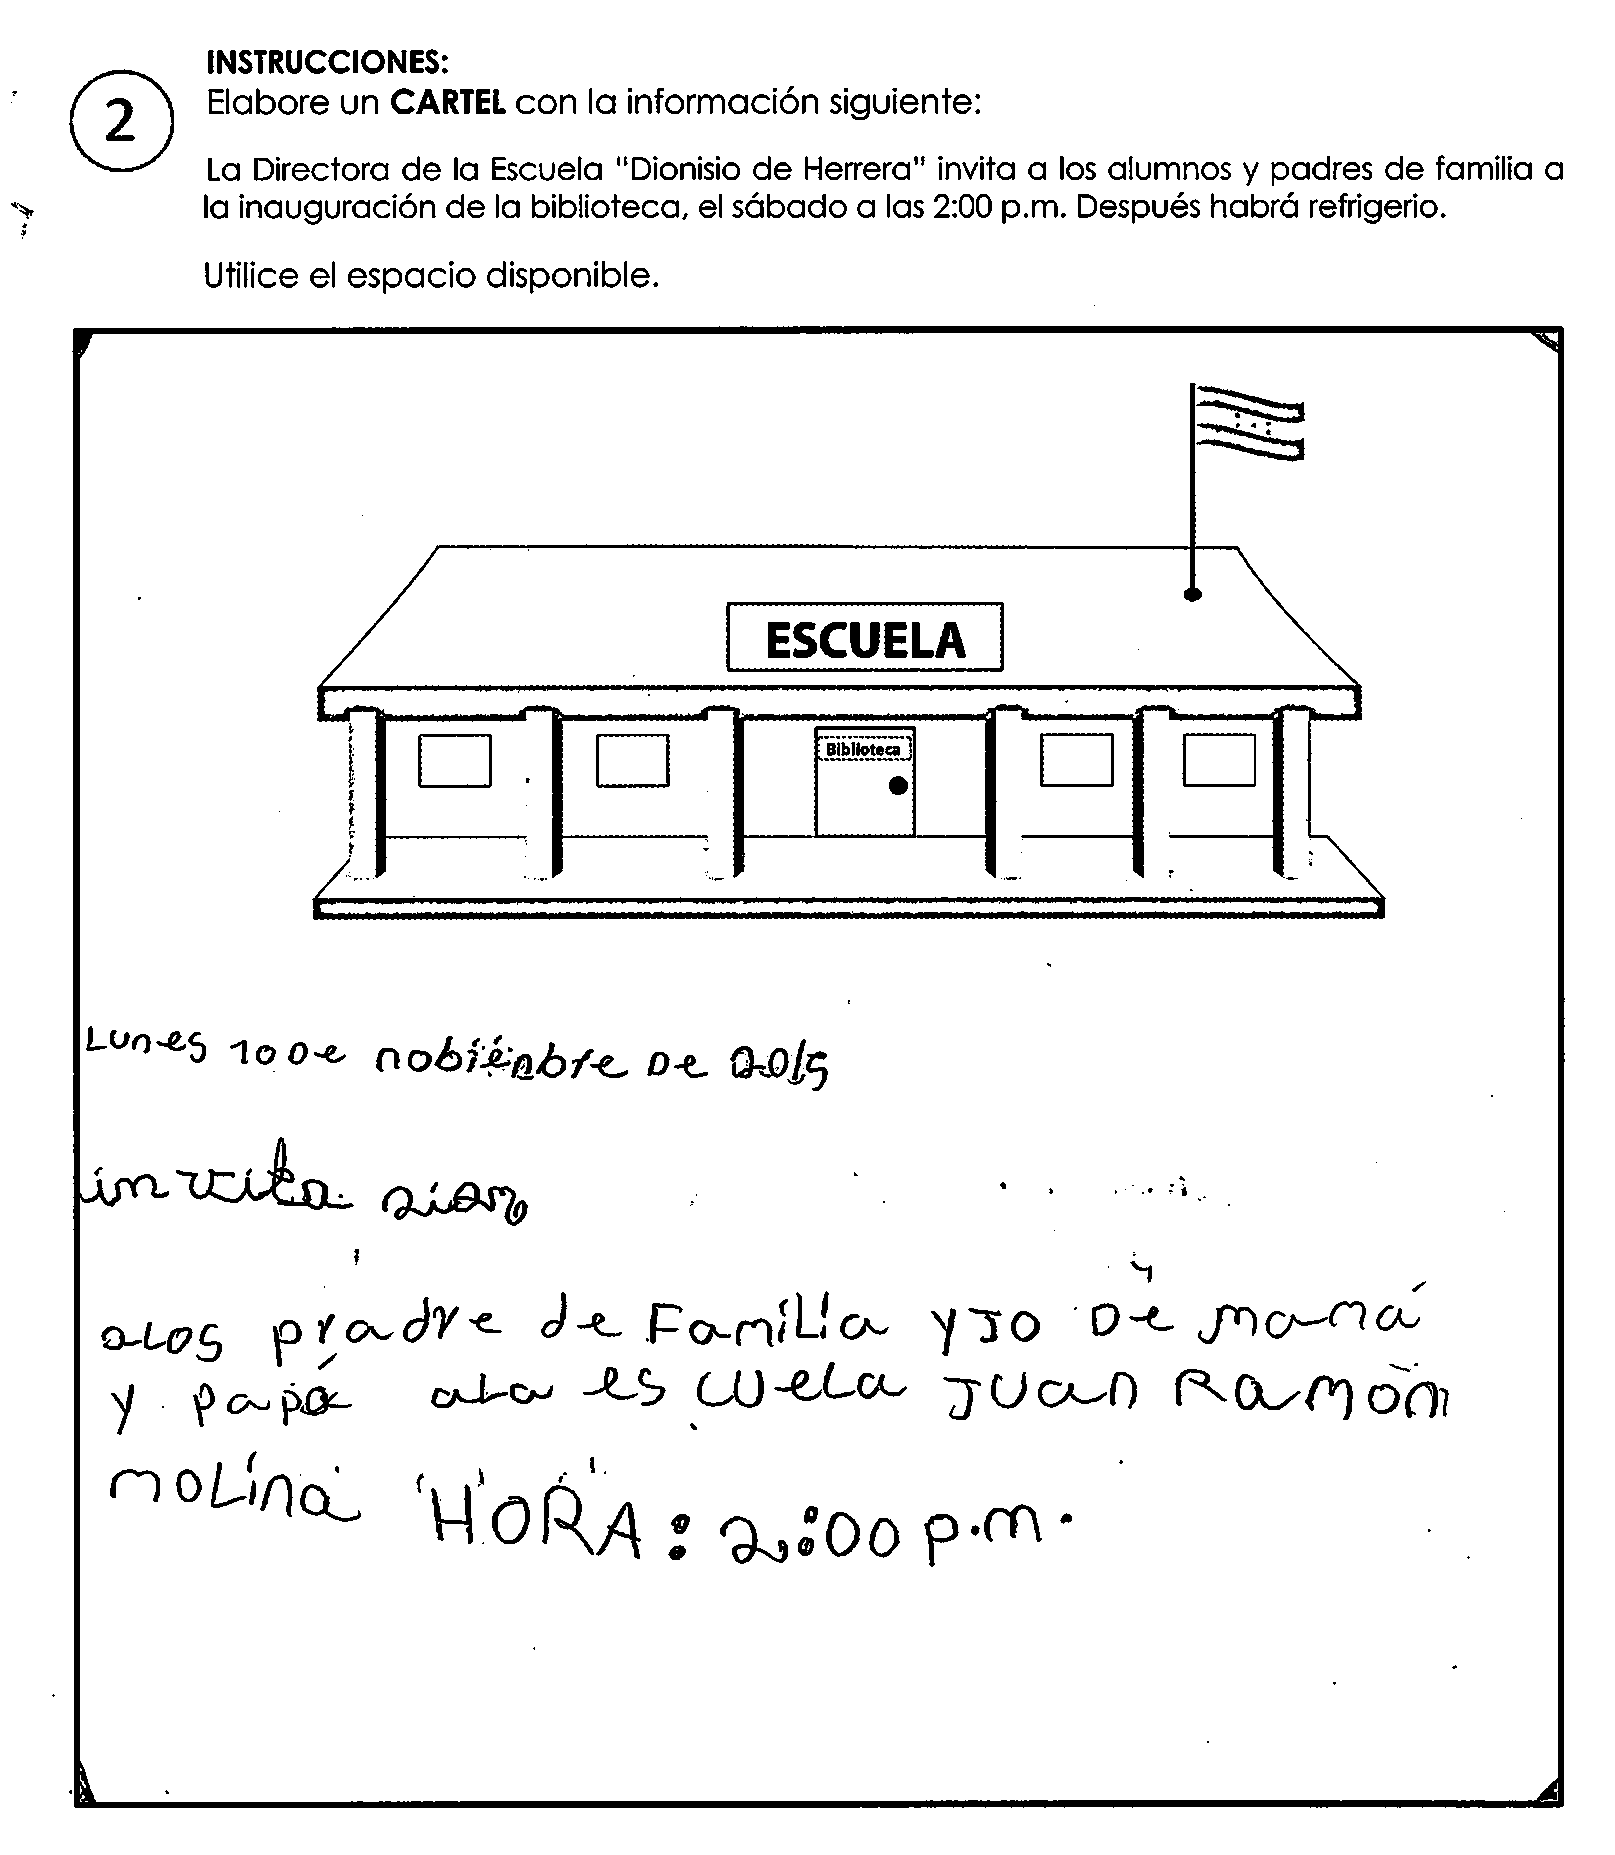 2
INSTRUCCIONES:
Elabore un CARTEL con la información siguiente:
La Directora de la Escuela "Dionisio de Herrera" invita a los alumnos y padres de familia a
la inauguración de la biblioteca, el sábado a las 2:00 p.m. Después habrá refrigerio.
Utilice el espacio disponible.
ESCUELA
Biblioteca
Lunes 10 De nobiénbre De 2015
invita
alos pradre de Familia y JO De mamá
y papá ala es cuela Juan Ramón
molina HORA: 2:00 p.m.